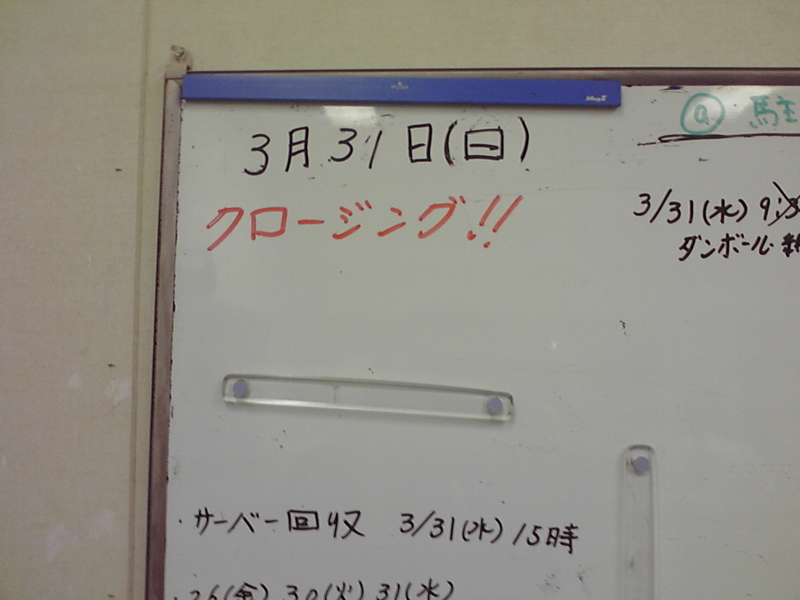 3月31日(日)
クロージング!!
・サーバー回収 3/31(水) 15時
・26(金) 30(火) 31(水)
3/31(水)
ダンボール